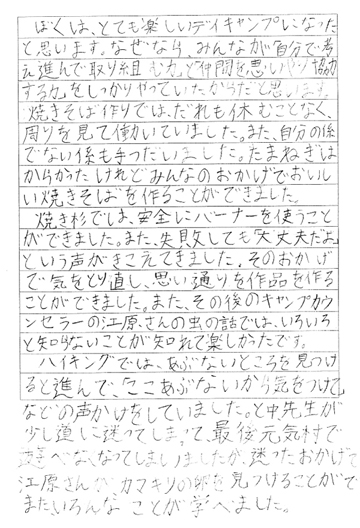 ぼくは、とても楽しいデイキャンプになった
と思います。なぜなら、みんなが自分で考
え進んで取り組む力と仲間を思いやり協力
する力をしっかりやっていたからだと思います。
焼きそば作りでは、だれも休むことなく、
周りを見て働いていました。また、自分の係
でない係も手つだいました。たまねぎは
からかったけれどみんなのおかげでおいし
い焼きそばを作ることができました。
焼き杉では、安全にバーナーを使うこと
ができました。また、失敗しても「大丈夫だよ」
という声がきこえてきました。そのおかげ
で気をとり直し、思い通りを作品を作る
ことができました。また、その後のキャンプカウ
ンセラーの江原さんの虫の話では、いろいろ
と知らないことが知れて楽しかったです。
ハイキングでは、あぶないところを見つけ
ると進んで、「ここあぶないから気をつけて」
などの声かけをしていました。と中先生が
少し道に迷ってしまって、最後元気村で
遊べなくなってしまいましたが、迷ったおかげで
江原さんがカマキリの卵を見つけることがで
きまたいろんなことが学べました。